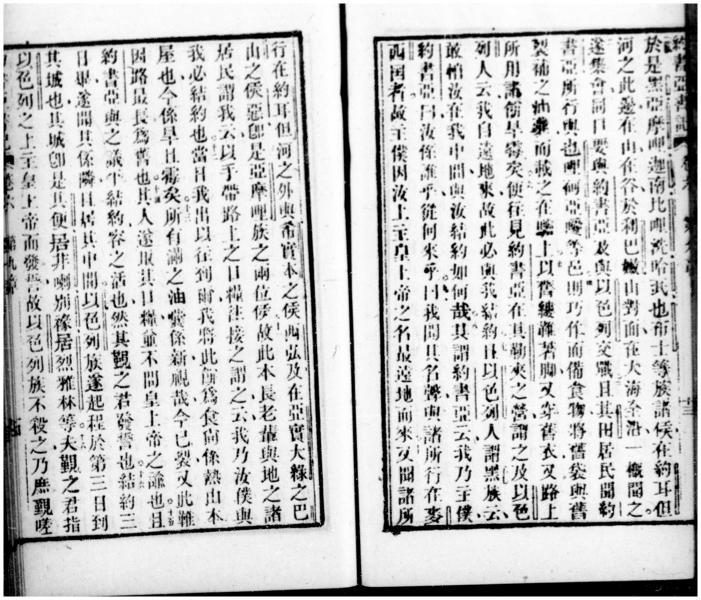 約書亞書記 卷六 第九章
於是黑亞摩嘩迦南比嘩洗哈民也布士等族諸侯在約耳但
河之此邊在山在谷於利巴山對面在大海全沿一聞之
遂集會同口要與約書亞及與以色列交戰且其田居民聞約
書亞所行與也呵亞等邑則巧作而備食物將舊袋與舊
裂補之油囊而載之在驢上以舊縷鞋著脚又穿舊衣又路上
所用諸餅旱霉矣便往見約書亞在其勒夾之營謂之及以色
列人云我自遠地來故此必與我結約且以色列人謂黑族云
敢怕汝在我中間與汝結約如何哉其謂約書亞云我乃主僕
約書亞曰汝係誰乎從何來乎曰我聞其名聲與諸所行在麥
西國者故主僕因汝上主皇上帝之名最遠地而來又聞諸所
行在約耳但河之外與希實本之侯西弘及在亞實大綠之巴
山之侯惡即是亞摩嘩族之兩位侯故此本長老輩與地之諸
居民謂我云以手帶路上之日糧往接之謂之云我乃汝僕與
我必結約也當日我出以往到爾我將此餅為食尚係熱由本
屋也今係旱且霉矣所有滿之油囊係新視哉今已裂又此鞋
因路最長為舊也其人遂取其日糧並不問皇上帝之諭也且
約書亞與之議平結約容之活也然其覲之君發誓也結約三
日畢遂聞其係隣且居其中間以色列族遂起程於第三日到
其城也其城即是其便居非喇別稼居烈雅林等夫覲之君指
以色列之上主皇上帝而發誓故以色列族不殺之乃庶覲嗟
卷六 第九章